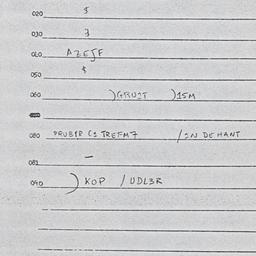 020 $
030 3
040 AZEJF
050 $
060 )GRUIT )15M
080 PRUBIR C1 TREFM7 /IN DE HANT
081 —
090 ) KOP / UDL3R